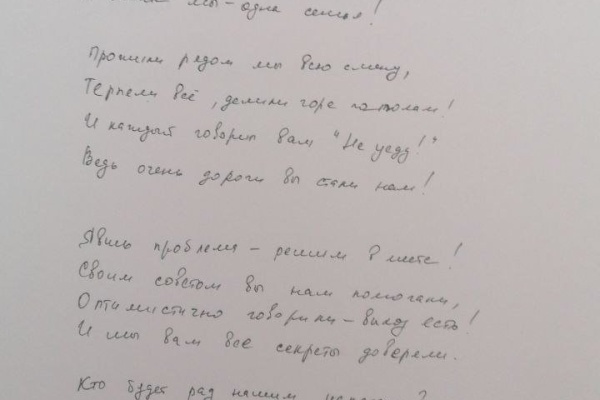 мы - одна семья!
Прожили рядом мы всю смену,
Терпели всё, делили горе пополам!
И каждый говорит вам "Не уеду!"
Ведь очень дороги вы стали нам!
Явись проблема - решим вместе!
Своим советом вы нам помогали,
Оптимистично говорили - выход есть!
И мы вам все секреты доверели.
Кто будет рад нашим